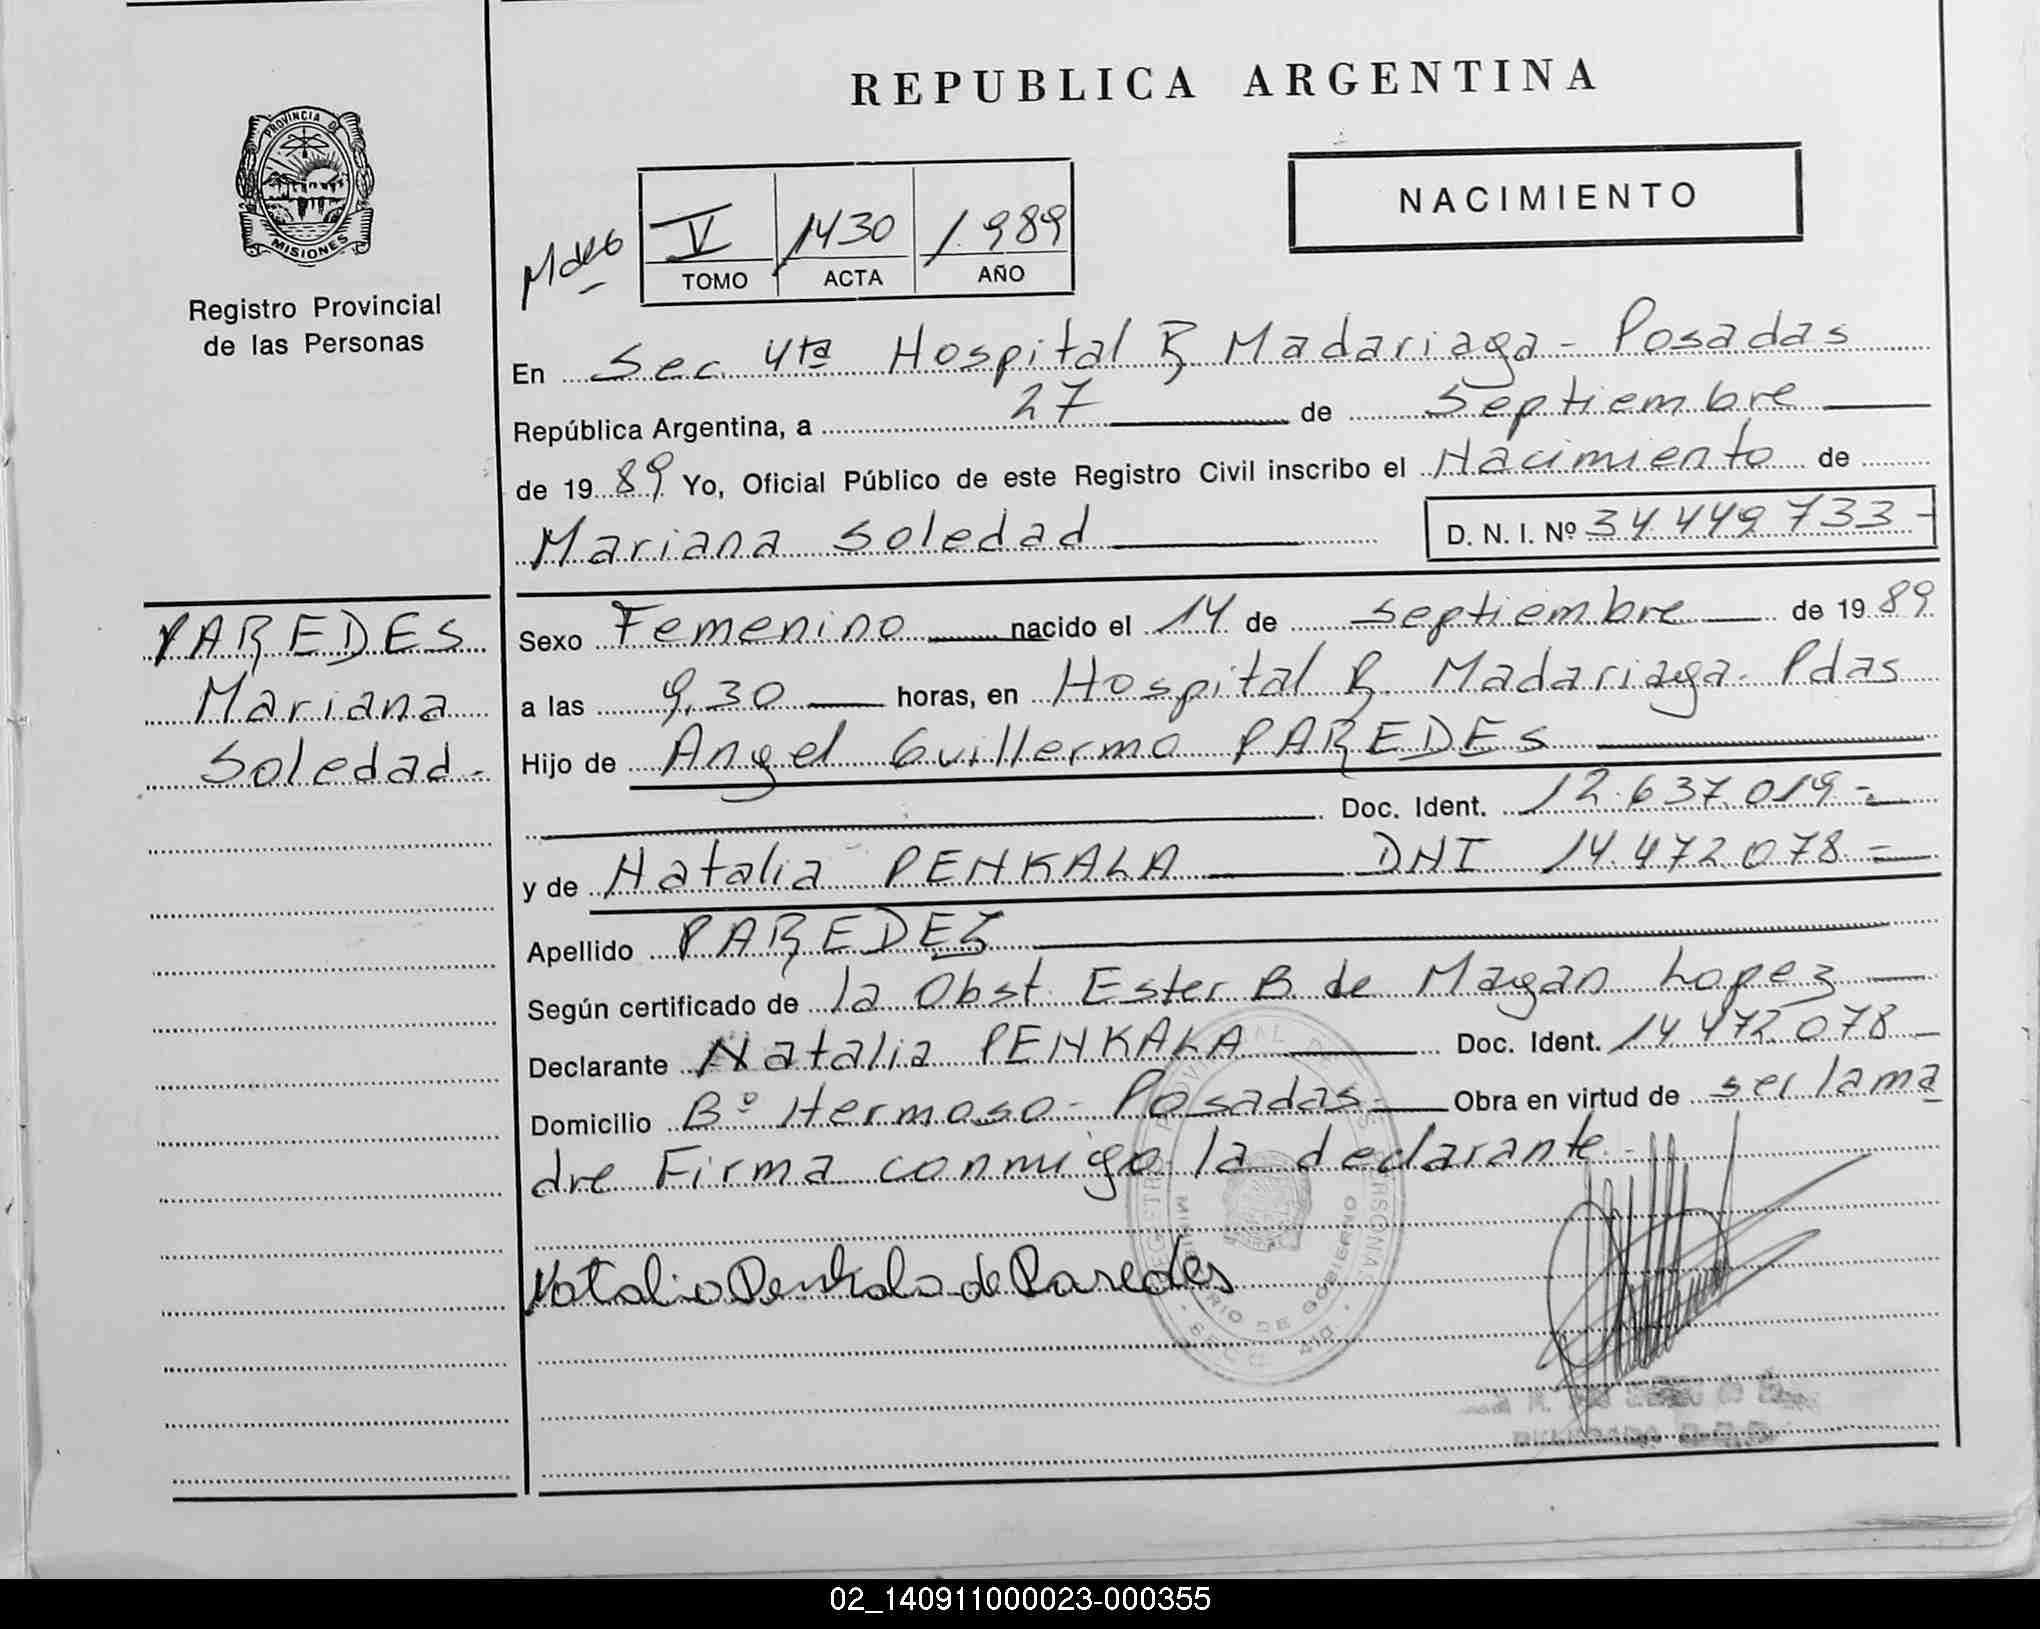 REPUBLICA ARGENTINA
PROVINCIA DE
MISIONES
Registro Provincial
de las Personas
NACIMIENTO
V 1430 1.989
TOMO ACTA AÑO
En Sec. 4ta Hospital R Madariaga - Posadas
República Argentina, a 27 de Septiembre
de 1989 Yo, Oficial Público de este Registro Civil inscribo el Nacimiento de
Mariana Soledad D. N. I. Nº 34.449.733-
PAREDES
Mariana
Soledad.-
Sexo Femenino nacido el 14 de septiembre de 1989
a las 9,30 horas, en Hospital R. Madariaga. Pdas
Hijo de Angel Guillermo PAREDES
Doc. Ident. 12.637.019-
y de Natalia PENKALA DNI 14.472.078-
Apellido PAREDES
Según certificado de la Obst. Ester B. de Magan Lopez
Declarante Natalia PENKALA Doc. Ident. 14.472.078-
Domicilio Bº Hermoso - Posadas- Obra en virtud de ser la ma
dre Firma conmigo la declarante.-
Natalia Penkala de Paredes
MINISTERIO DE GOBIERNO
02_140911000023-000355